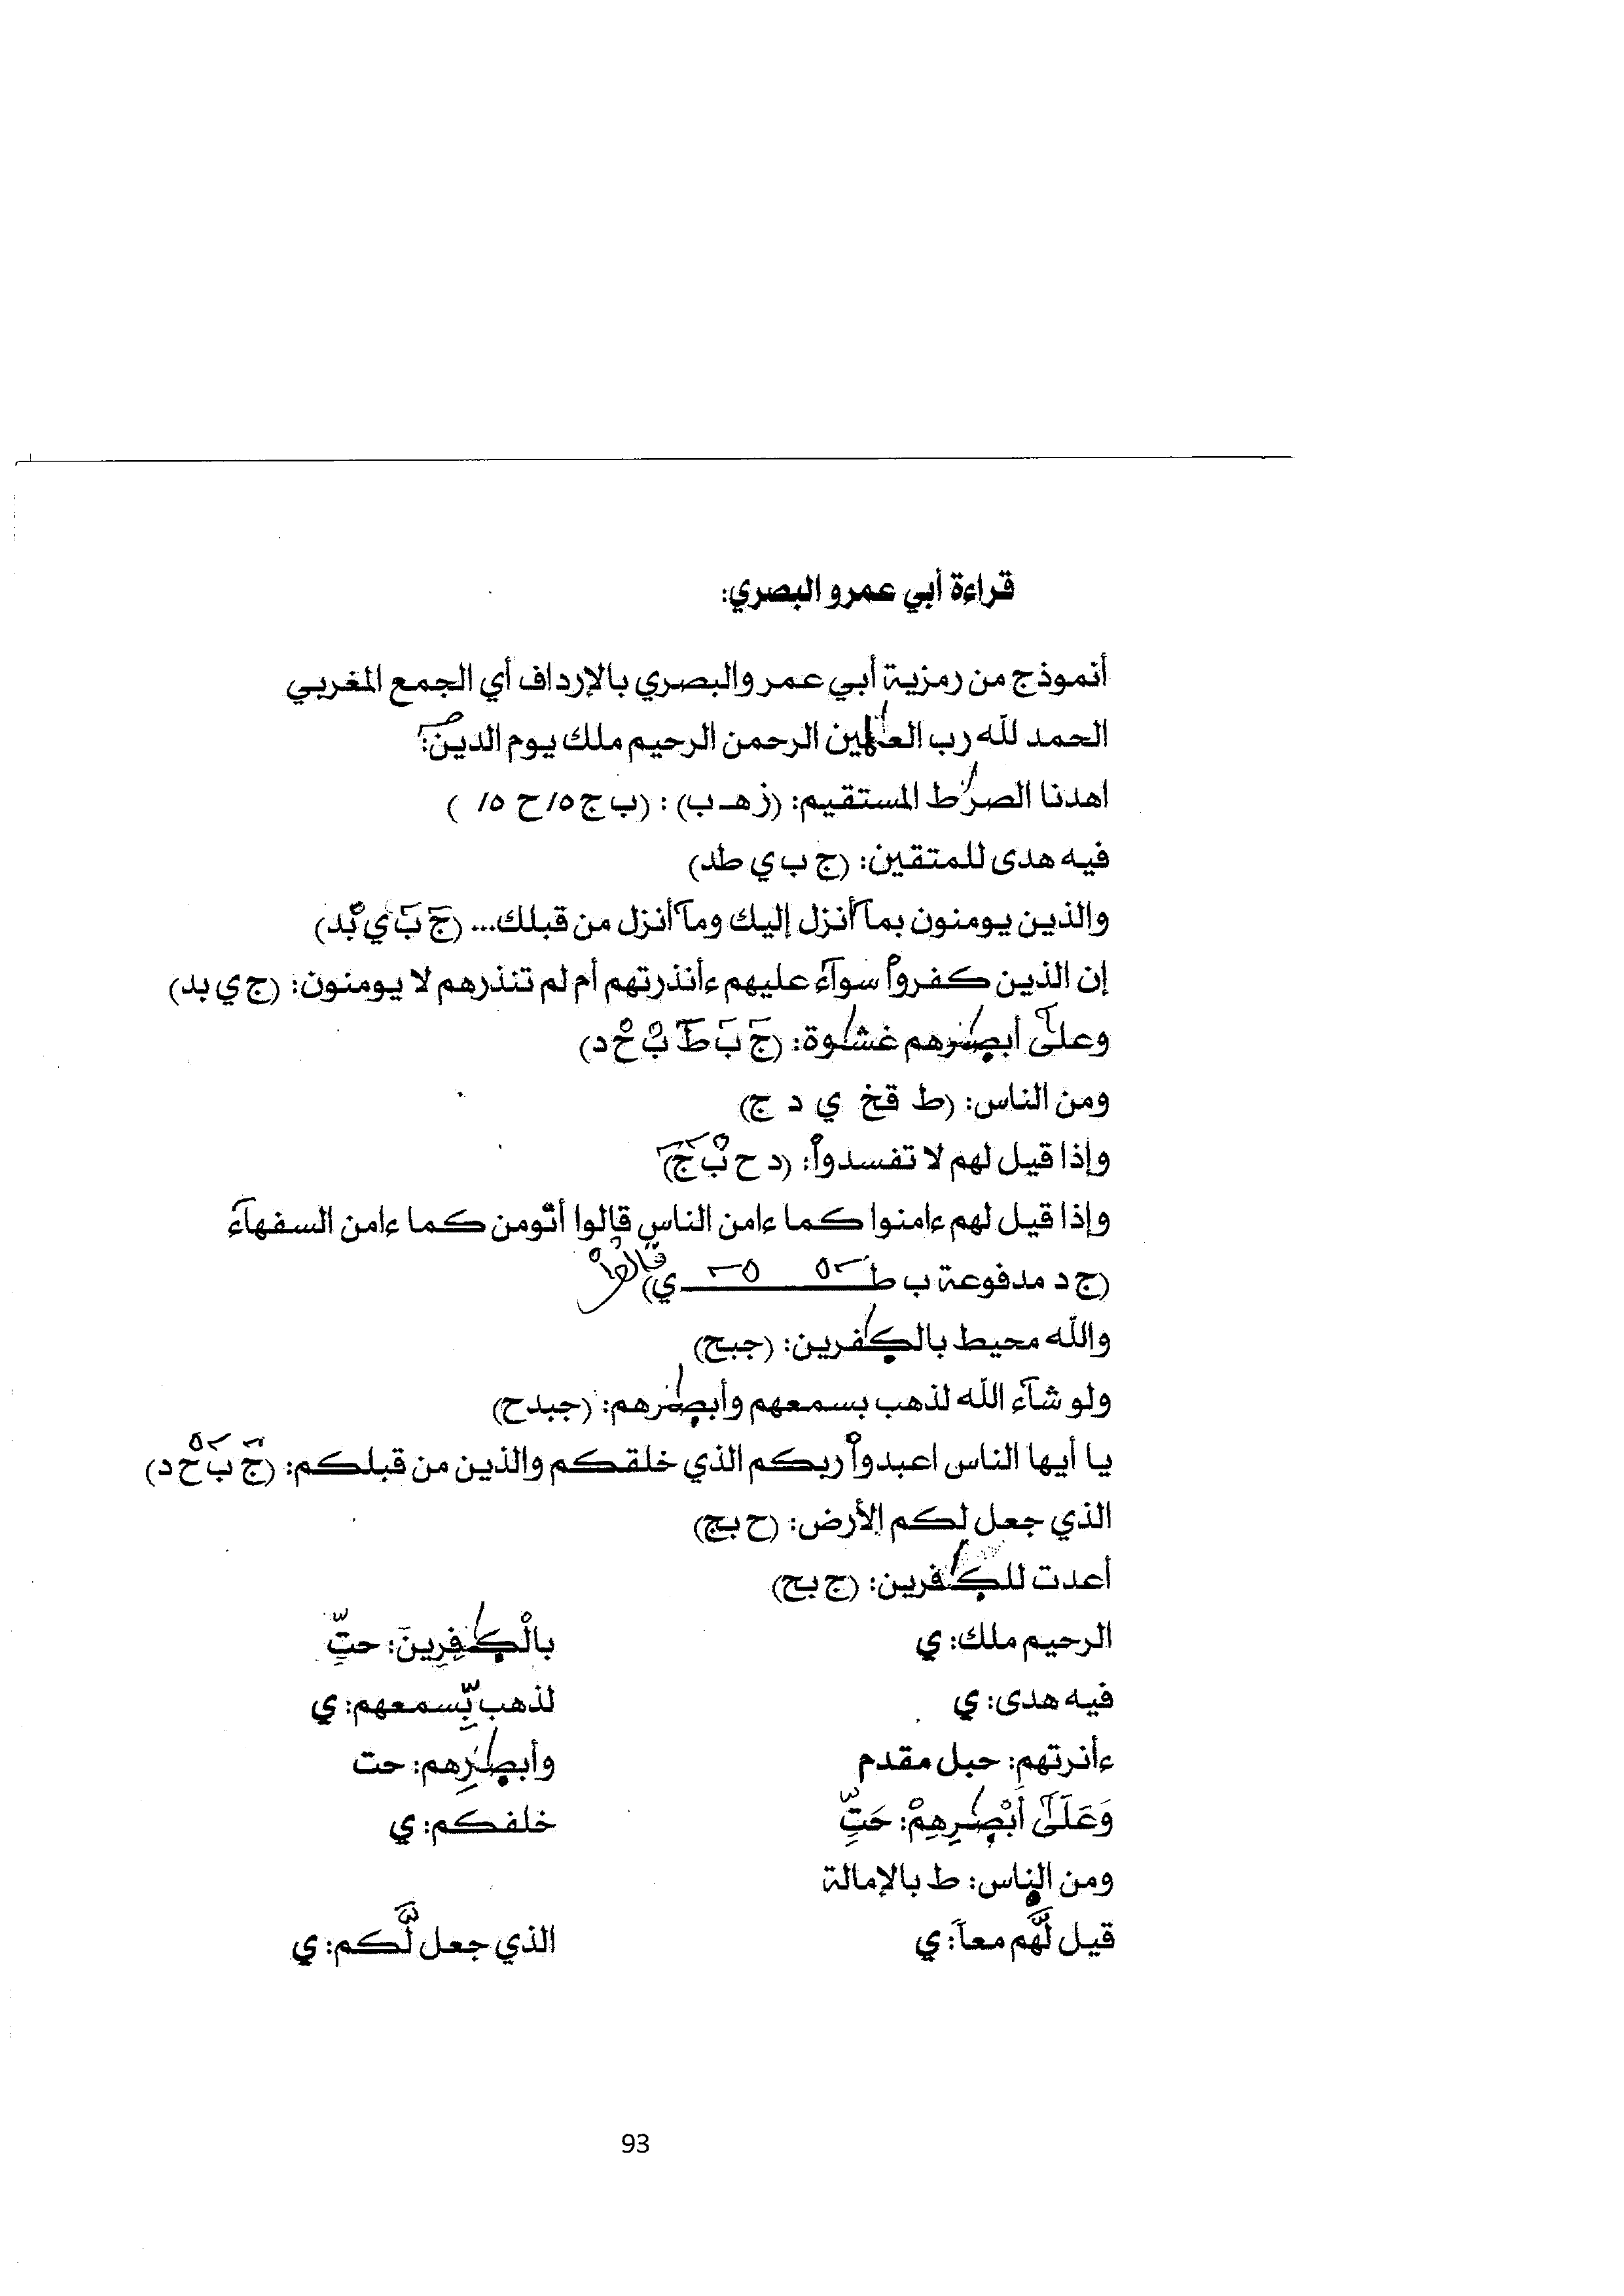 قراءة أبي عمرو البصري:
أنموذج من رمزية أبي عمر والبصري بالإرداف أي الجمع المغربي
الحمد لله رب العلمين الرحمن الرحيم ملك يوم الدين:
اهدنا الصرط المستقيم: (زهـ ب) : (ب ج ٥/ ح ٥/ )
فيه هدى للمتقين: (ج ب ي طد)
والذين يومنون بمآ أنزل إليك ومآ أنزل من قبلك... (جَ بَ يْ بْد)
إن الذين كفروا سوآء عليهم ءأنذرتهم أم لم تنذرهم لا يومنون: (ج ي بد)
وعلى أبصرهم غشوة: (جَ بَ طَ بْ حْ د)
ومن الناس: (ط قخ ي د ج)
وإذا قيل لهم لا تفسدوا: (د ح بْ جَ)
وإذا قيل لهم ءامنوا كما ءامن الناس قالوا أنومن كما ءامن السفهآء
(ج د مدفوعة ب ط ي) قالوا
والله محيط بالكفرين: (جبح)
ولو شآء الله لذهب بسمعهم وأبصرهم: (جبدح)
يا أيها الناس اعبدوا ربكم الذي خلقكم والذين من قبلكم: (جَ بَ حْ د)
الذي جعل لكم الأرض: (ح بج)
أعدت للكفرين: (ج بح)
الرحيم ملك: ي
بالْكفِرِينَ: حتِّ
فيه هدى: ي
لذهب بِّسمعهم: ي
ءأنرتهم: حبل مقدم
وأبصرِهم: حت
وَعَلَى أَبْصرِهِمْ: حَتِّ
خلفكم: ي
ومن الناس: ط بالإمالة
قيل لَّهم معاً: ي
الذي جعل لَّكم: ي
93